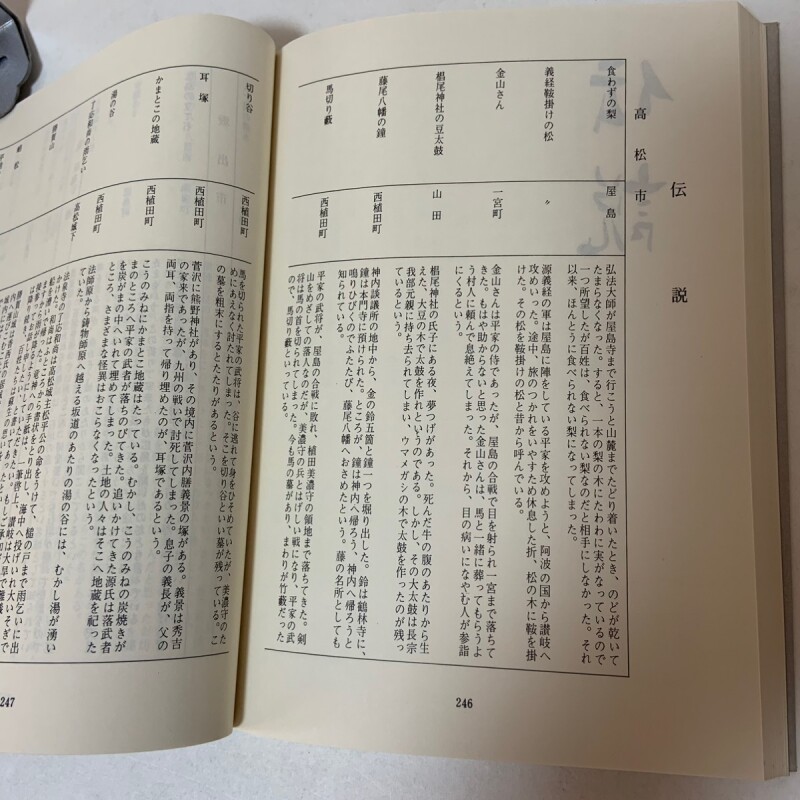 伝説
高松市
食わずの梨
屋島
弘法大師が屋島寺まで行こうと山麓までたどり着いたとき、のどが乾いて
たまらなくなった。すると、一本の梨の木にたわわに実がなっているので
一つ所望したが百姓は、食べられない梨なのだと相手にしなかった。それ
以来、ほんとうに食べられない梨になってしまった。
義経鞍掛けの松
〃
源義経の軍は屋島に陣をしている平家を攻めようと、阿波の国から讃岐へ
攻めいった。途中、旅のつかれをいやすため休息した折、松の木に鞍を掛
けた。その松を鞍掛けの松と昔から呼んでいる。
金山さん
一宮町
金山さんは平家の侍であったが、屋島の合戦で目を射られ一宮まで落ちて
きた。もはや助からないと思った金山さんは、馬と一緒に葬ってもらうよ
う村人に頼んで息絶えてしまった。それから、目の病いになやむ人が参詣
にくるという。
椙尾神社の豆太鼓
山田
椙尾神社の氏子にある夜、夢つげがあった。死んだ牛の腹のあたりから生
えた、大豆の木で太鼓を作れというのである。しかし、その大太鼓は長宗
我部元親に持ち去られてしまい、ウマメガシの木で太鼓を作ったのが残っ
ているという。
藤尾八幡の鐘
西植田町
神内談議所の地中から、金の鈴五箇と鐘一つを堀り出した。鈴は鶴林寺に、
鐘は本門寺に預けられた。ところが、鐘は神内へ帰ろう、神内へ帰ろうと
鳴りひびくのでふたたび、藤尾八幡へおさめたという。藤の名所としても
知られている。
馬切り藪
西植田町
平家の武将が、屋島の合戦に敗れ、植田美濃守の領地まで落ちてきた。剣
山をめざしての落人なのだが、美濃守の兵とはげしい戦になり、平家の武
将は馬の首を切られてしまった。今も馬の墓があり、まわりが竹藪だった
ので、馬切り藪といっている。
246
切り谷
西植田町
馬を切られた平家の武将は、谷に逃れて身をひそめていたが、美濃守のた
めにあえなく討たれてしまった。そこを切り谷といい墓が残っている。こ
の墓を粗末にするとたたりがあるという。
耳塚
西植田町
菅沢に熊野神社があり、その境内に菅沢内膳義景の塚がある。義景は秀吉
の家来であったが、九州の戦いで討死してしまった。息子の義長が、父の
両耳、両指を持って帰り埋めたのが、耳塚であるという。
かまとこの地蔵
西植田町
こうのみねにかまとこ地蔵はたっている。むかし、こうのみねの炭焼きが
まのところへ平家の武者が落ちのびてきた。追いかけてきた源氏は落武者
を炭がまの中へいれて埋めてしまった。土地の人々はそこへ地蔵を祀った
ところ、さまざまな怪異はおこらなくなったという。
湯の谷
西植田町
法師原から鋳物師原へ越える坂道のあたりの湯の谷には、むかし湯が湧い
ていた。
了応和尚の雨乞い
高松城下
法泉寺の了応和尚は高松城主松平公の命をうけて、槌の戸まで雨乞いに出
247